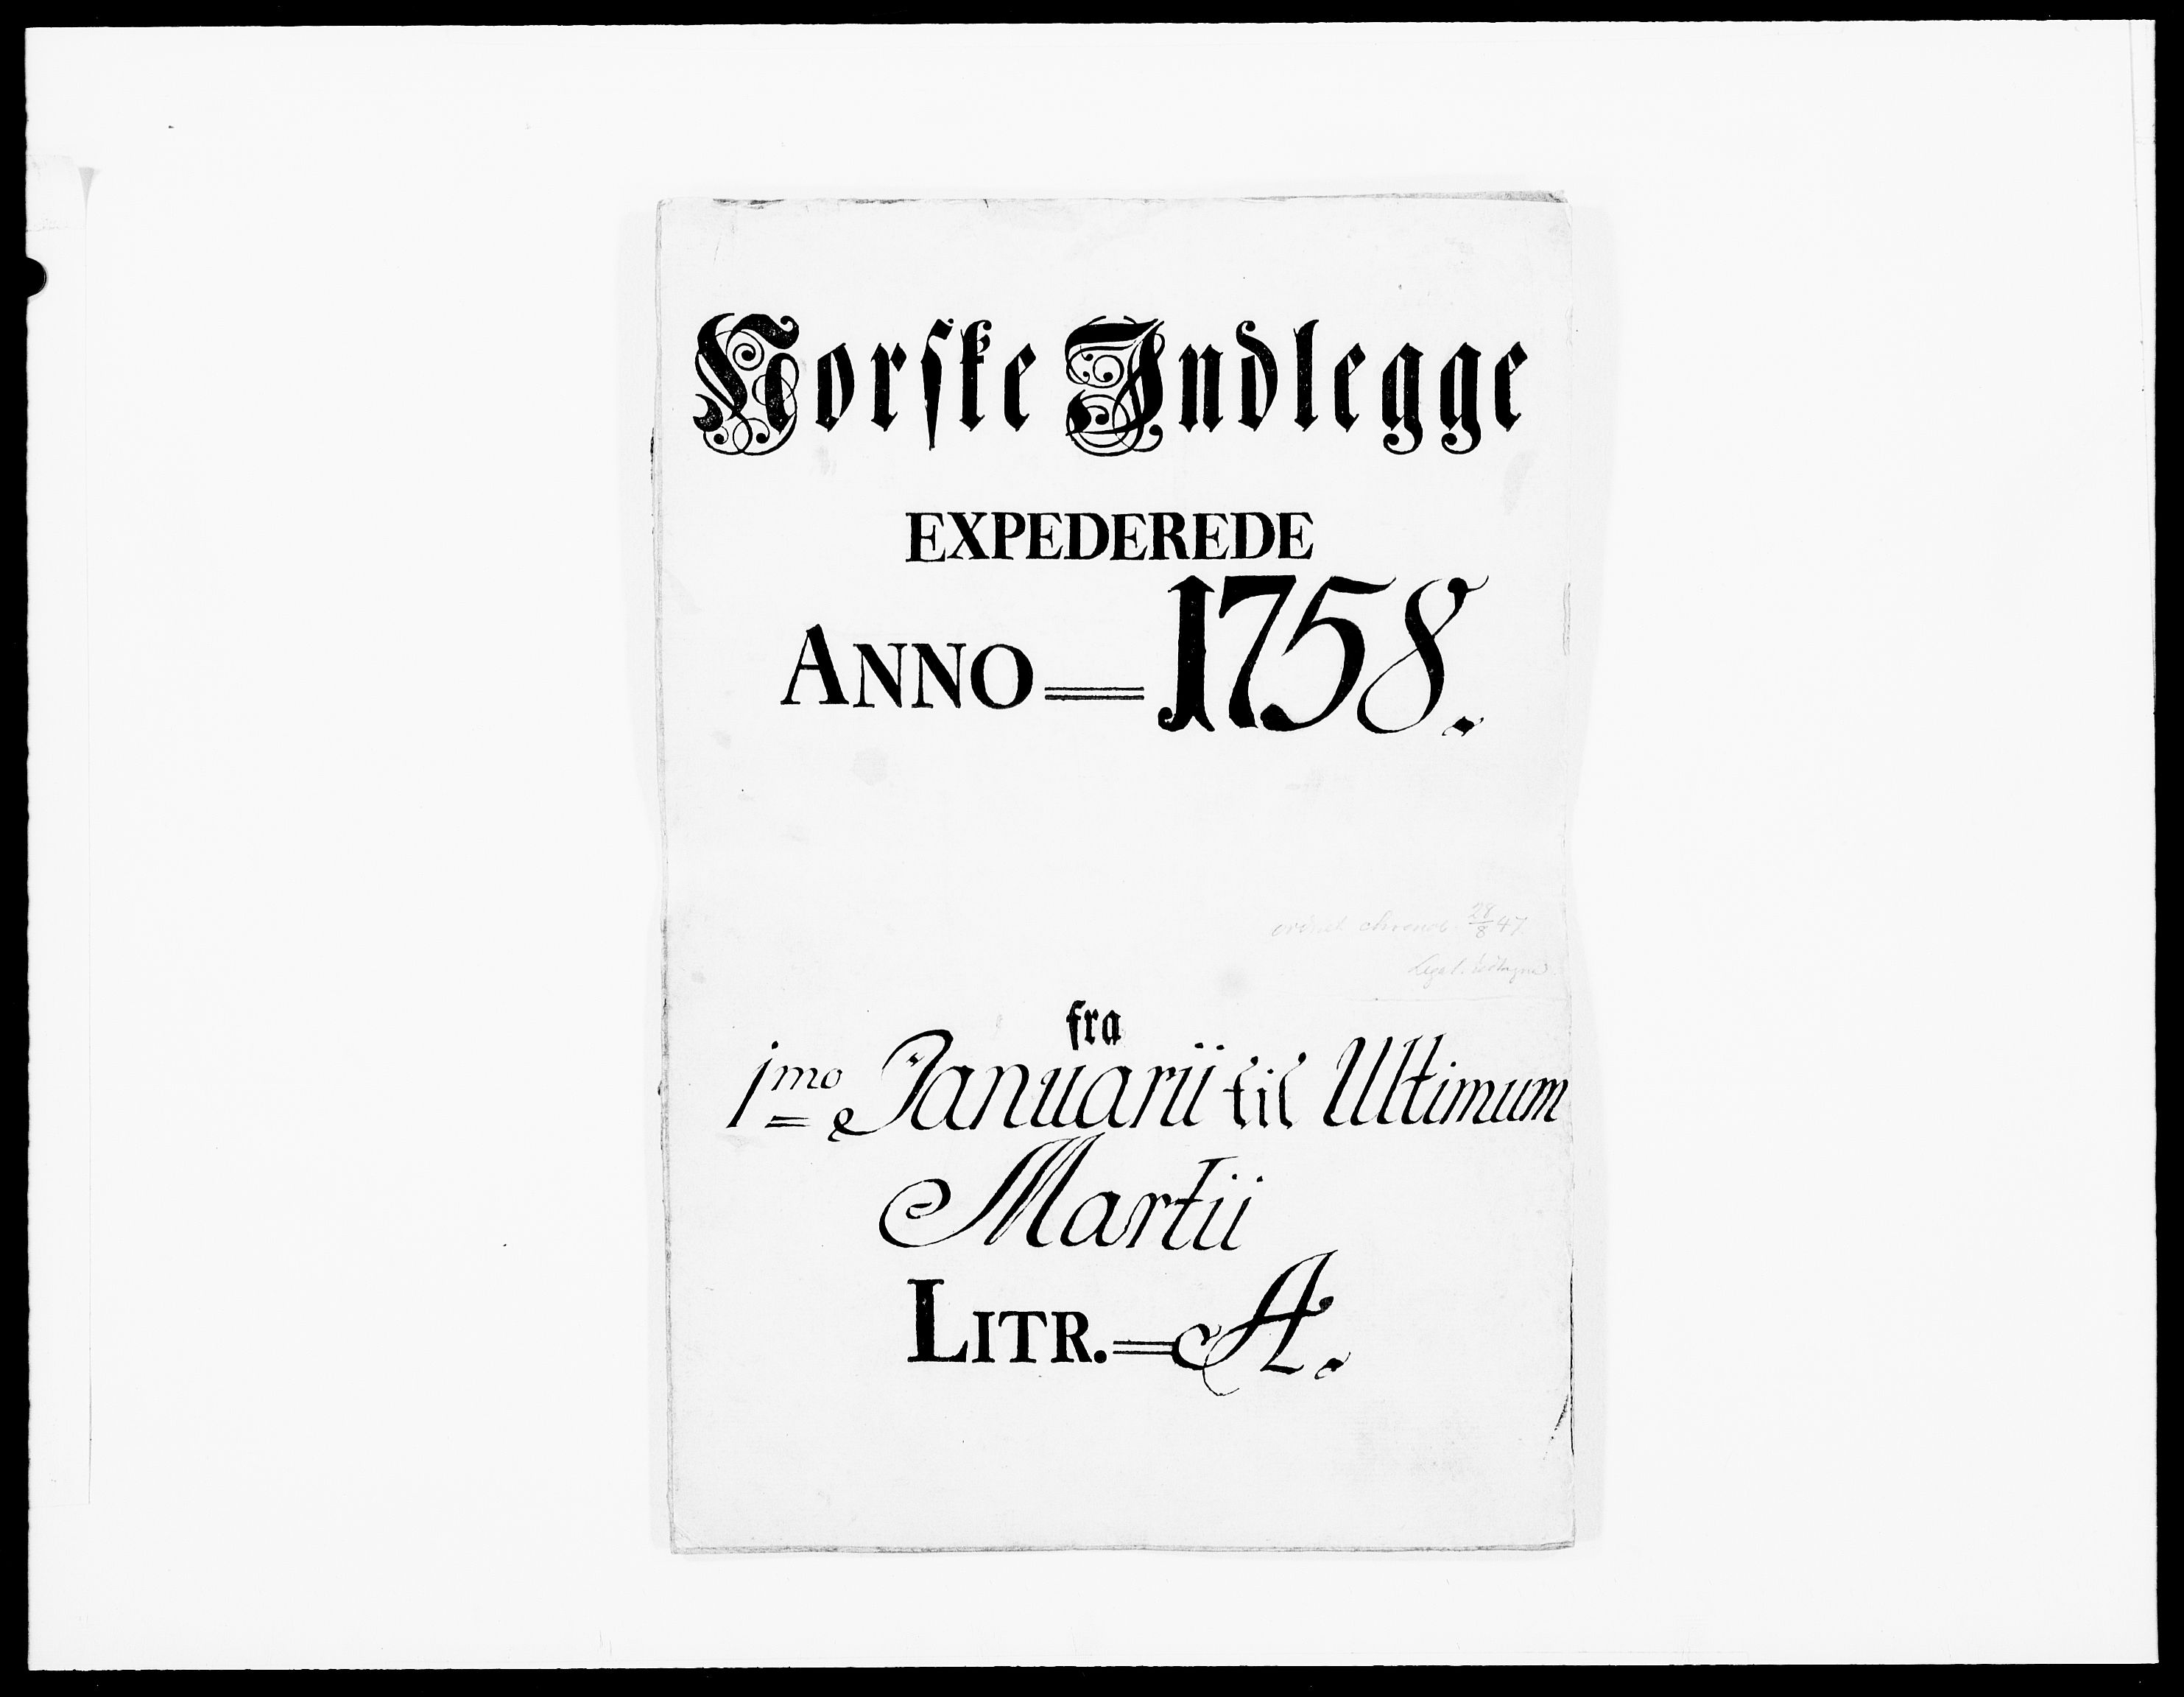 Norske Indlegge
EXPEDEREDE
ANNO = 1758.
28/8 47
fra
1mo Januarii til Ultimum
Martii
LITR. = A.